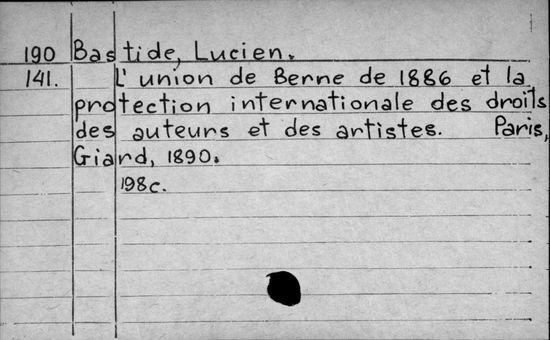 190 Bastide, Lucien.
141. L'union de Berne de 1886 et la
protection internationale des droits
des auteurs et des artistes. Paris,
Giard, 1890.
198c.